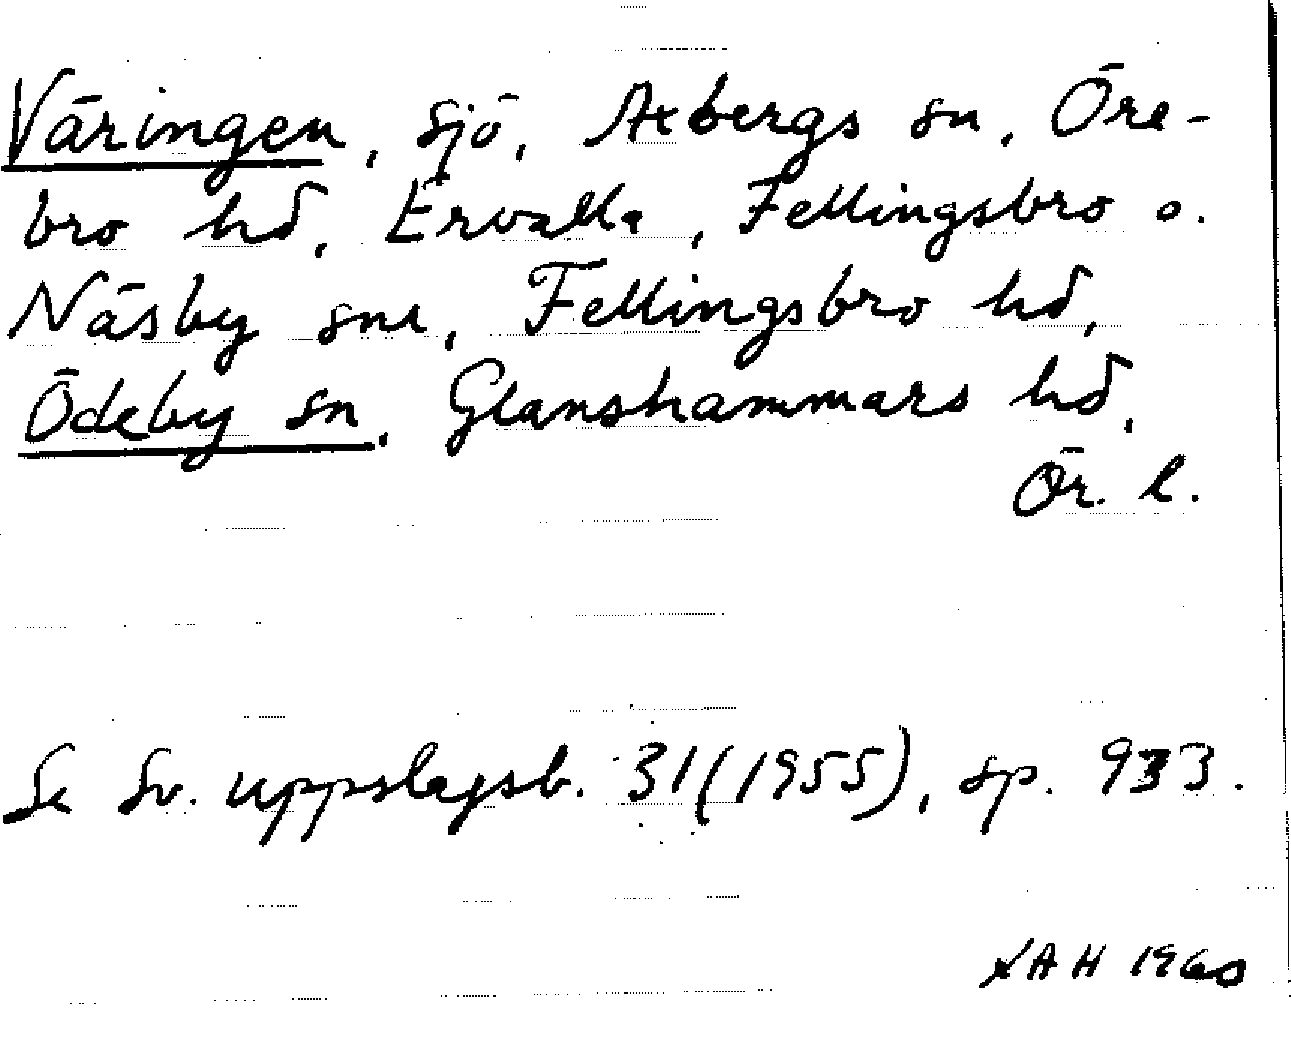 Väringen, sjö, Axbergs sn, Öre-
bro hd, Ervalla, Fellingsbro o.
Näsby snr, Fellingsbro hd,
Ödeby sn, Glanshammars hd,
Ör. l.
Se Sv. uppslagsb. 31 (1955), sp. 933.
AH 1960